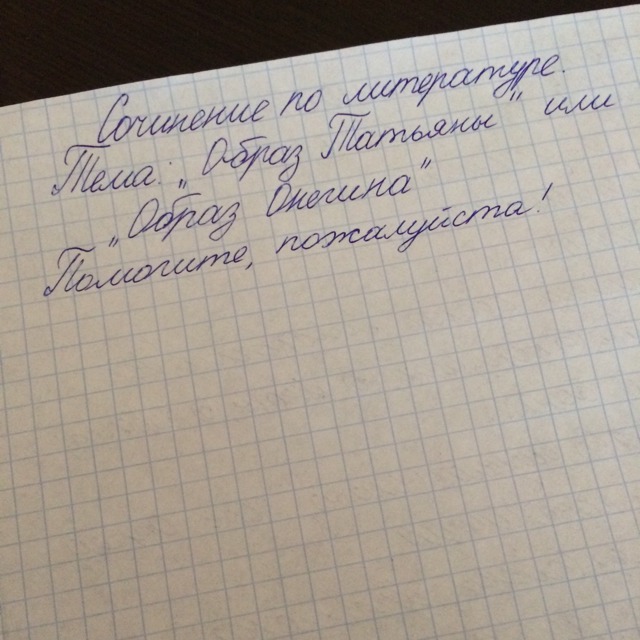 Сочинение по литературе.
Тема: „Образ Татьяны" или
„Образ Онегина"
Помогите, пожалуйста!